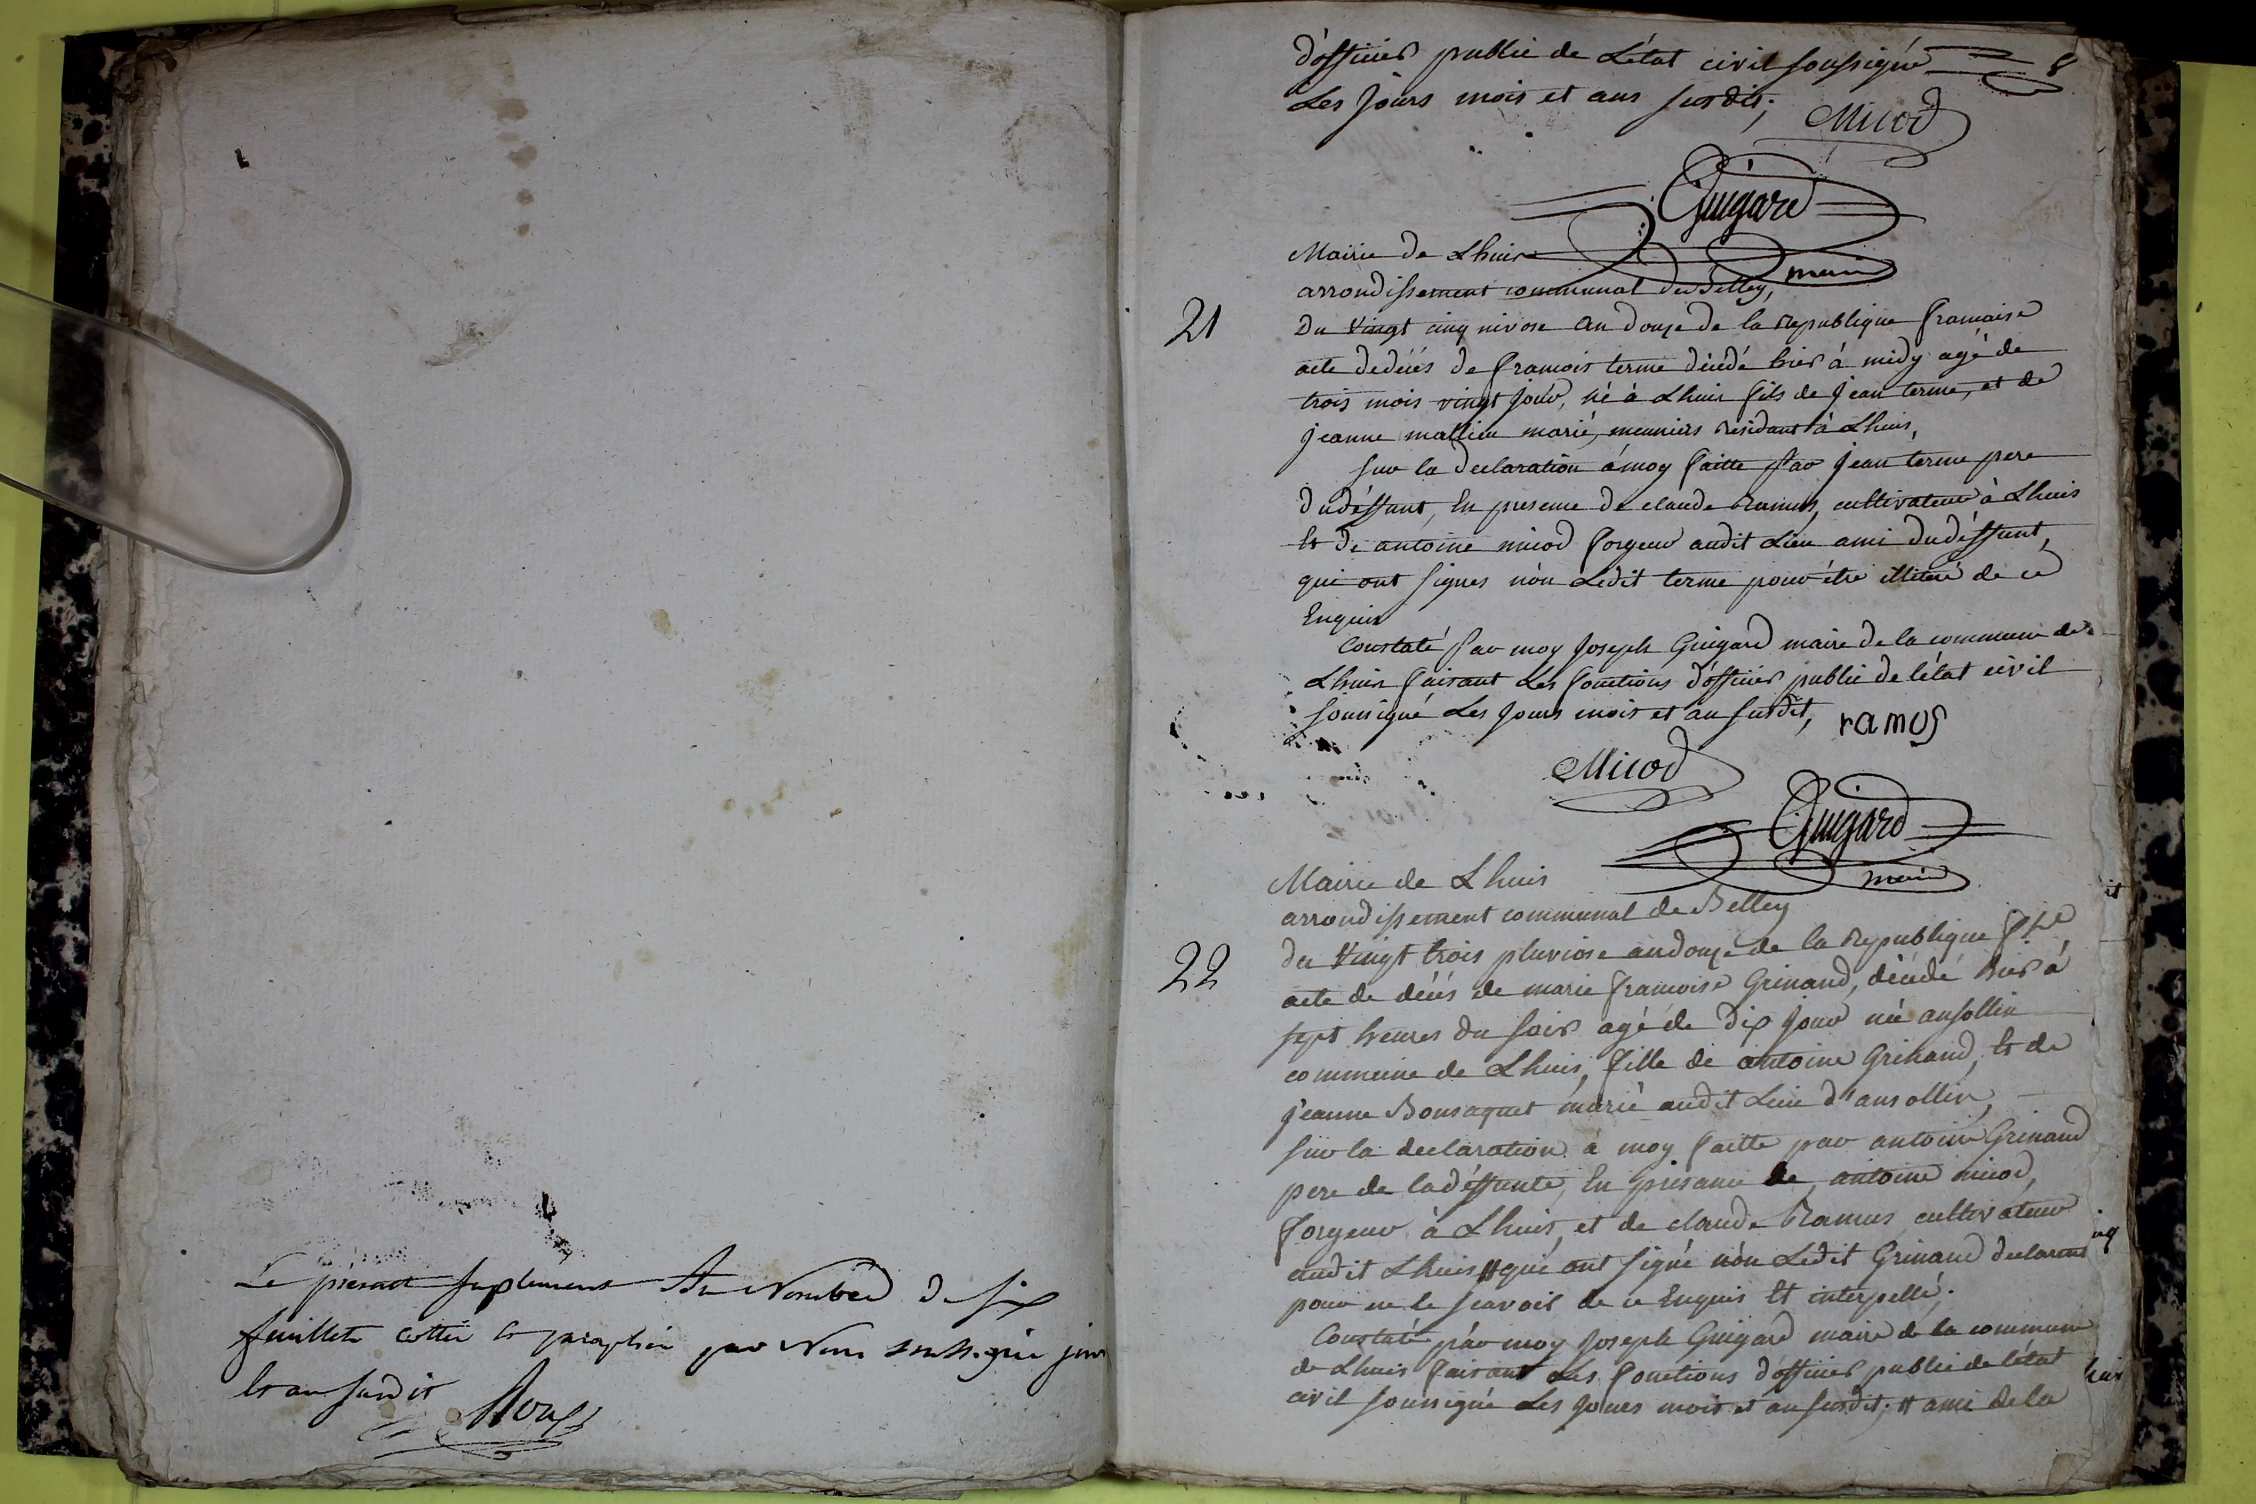 Le présent suplément Au Nombre de six
feuillets cottés et paraphés par Nous soussigné jour
et an susdit
d'officier public de L'état civil soussigné
8
Les Jours mois et ans susdit;
Micod
Guigard
maire
Mairie de Lhuis
arrondissement communal de Belley,
21
Du Vingt cinq nivose an douze de la Republique francaise
acte dedécés de francois terme décédé hier à midy agé de
trois mois vingt jour, né à Lhuis fils de jean terme, et de
jeanne mathieu marié, meuniers residant à Lhuis,
sur la declaration à moy faitte par jean terme pere
dudéffunt, En presence de claude Ramus, cultivateur à Lhuis
Et de antoine micod forgeur audit Lieu ami dudéffunt,
qui ont signes nón Ledit terme pour être illitéré de ce
Enquis
Constaté par moy Joseph Guigard maire de la commune de
Lhuis faisant Les fonctions d'officier public de l'état civil
soussigné Les Jours mois et an susdit,
ramus
Micod
Guigard
maire
Mairie de Lhuis
arrondissement communal de Belley
22
du Vingt trois pluviose an douze de la Republique fse
acte de décés de marie francoise Grinand, décédé hier à
sept heures du soir agé de dix jour né ansollin
commune de Lhuis, fille de antoine Grinand, Et de
jeanne Bonsaquet marié audit Lieu d'ansollin,
sur la declaration à moy faitte par antoine Grinand
pere de ladéffunte, En présance de antoine micod,
forgeur à Lhuis, et de claude Ramus cultivateur
audit Lhuis # qui ont signé nón Ledit Grinand declarant
pour ne le scavoir de ce Enquis Et interpellé;
Constaté par moy Joseph Guigard maire de la commune
de Lhuis faisant Les fonctions d'officier public de l'état
civil soussigné Les Jours mois et an susdit; # ami de la